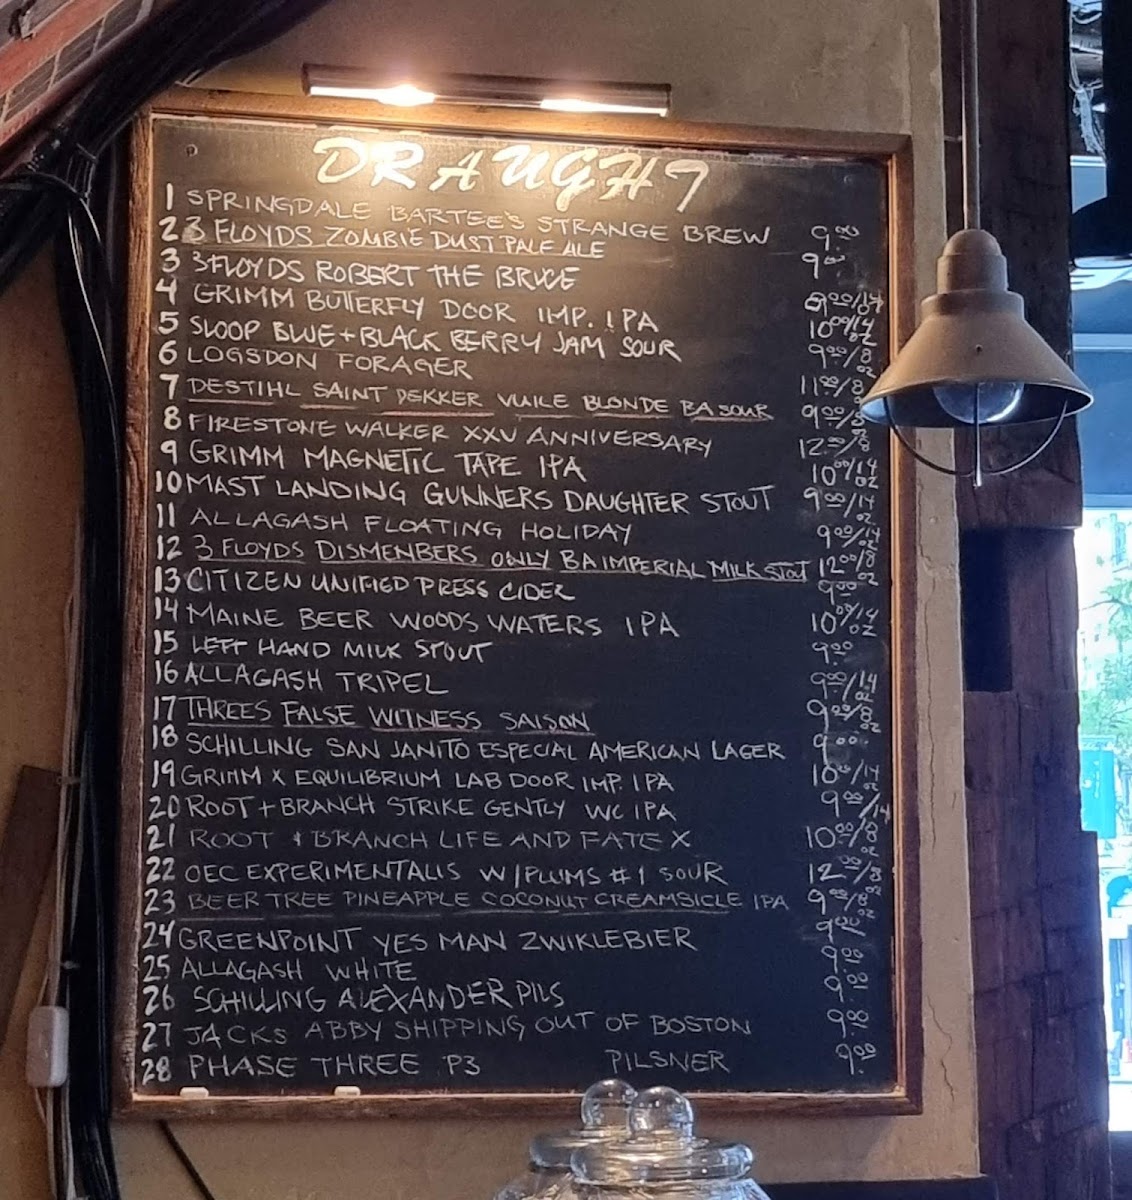 DRAUGHT
1 SPRINGDALE BARTEE'S STRANGE BREW 9.00
2 3 FLOYDS ZOMBIE DUST PALE ALE 9.00
3 3 FLOYDS ROBERT THE BRUCE 9.00/14
4 GRIMM BUTTERFLY DOOR IMP. IPA 10.00/14 oz
5 SLOOP BLUE + BLACK BERRY JAM SOUR 9.00/8 oz
6 LOGSDON FORAGER 11.00/8
7 DESTIHL SAINT DEKKER VUILE BLONDE BA SOUR 9.00/8
8 FIRESTONE WALKER XXV ANNIVERSARY 12.00/8
9 GRIMM MAGNETIC TAPE IPA 10.00/14 oz
10 MAST LANDING GUNNERS DAUGHTER STOUT 9.00/14 oz
11 ALLAGASH FLOATING HOLIDAY 9.00/14 oz
12 3 FLOYDS DISMENBERS ONLY BA IMPERIAL MILK STOUT 12.00/8 oz
13 CITIZEN UNIFIED PRESS CIDER 9.00
14 MAINE BEER WOODS WATERS IPA 10.00/14 oz
15 LEFT HAND MILK STOUT 9.00
16 ALLAGASH TRIPEL 9.00/14 oz
17 THREES FALSE WITNESS SAISON 9.00/8 oz
18 SCHILLING SAN JANITO ESPECIAL AMERICAN LAGER 9.00
19 GRIMM X EQUILIBRIUM LAB DOOR IMP. IPA 10.00/14
20 ROOT + BRANCH STRIKE GENTLY WC IPA 9.00/14
21 ROOT + BRANCH LIFE AND FATE X 10.00/8 oz
22 OEC EXPERIMENTALIS W/PLUMS #1 SOUR 12.00/8
23 BEER TREE PINEAPPLE COCONUT CREAMSICLE IPA 9.00/8 oz
24 GREENPOINT YES MAN ZWIKLEBIER 9.00
25 ALLAGASH WHITE 9.00
26 SCHILLING ALEXANDER PILS 9.00
27 JACKS ABBY SHIPPING OUT OF BOSTON 9.00
28 PHASE THREE P3 PILSNER 9.00